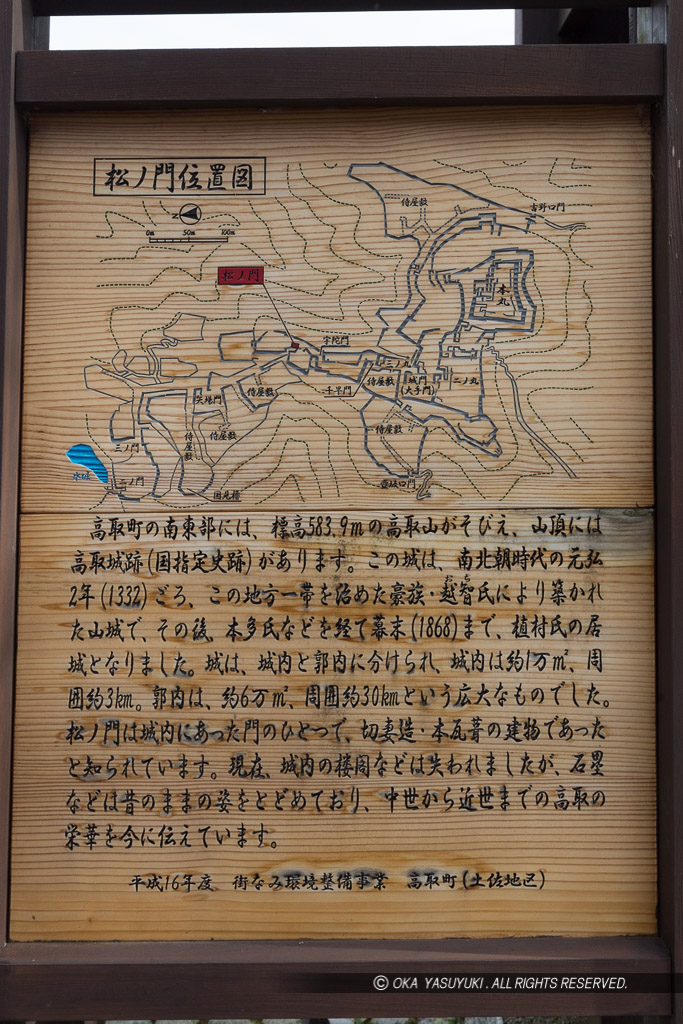 松ノ門位置図
N
0m 50m 100m
侍屋敷
吉野口門
本丸
松ノ門
宇陀門
三ノ丸
侍屋敷
城門
(大手門)
二ノ丸
千早門
侍屋敷
矢場門
侍屋敷
侍屋敷
侍屋敷
三ノ門
二ノ門
水堀
国見櫓
壺坂口門
高取町の南東部には、標高583.9mの高取山がそびえ、山頂には
高取城跡(国指定史跡)があります。この城は、南北朝時代の元弘
2年(1332)ごろ、この地方一帯を治めた豪族・越智氏により築かれ
た山城で、その後、本多氏などを経て幕末(1868)まで、植村氏の居
城となりました。城は、城内と郭内に分けられ、城内は約1万㎡、周
囲約3km。郭内は、約6万㎡、周囲約30kmという広大なものでした。
松ノ門は城内にあった門のひとつで、切妻造・本瓦葺の建物であった
と知られています。現在、城内の楼閣などは失われましたが、石塁
などは昔のままの姿をとどめており、中世から近世までの高取の
栄華を今に伝えています。
平成16年度 街なみ環境整備事業 高取町(土佐地区)
© OKA YASUYUKI . ALL RIGHTS RESERVED.